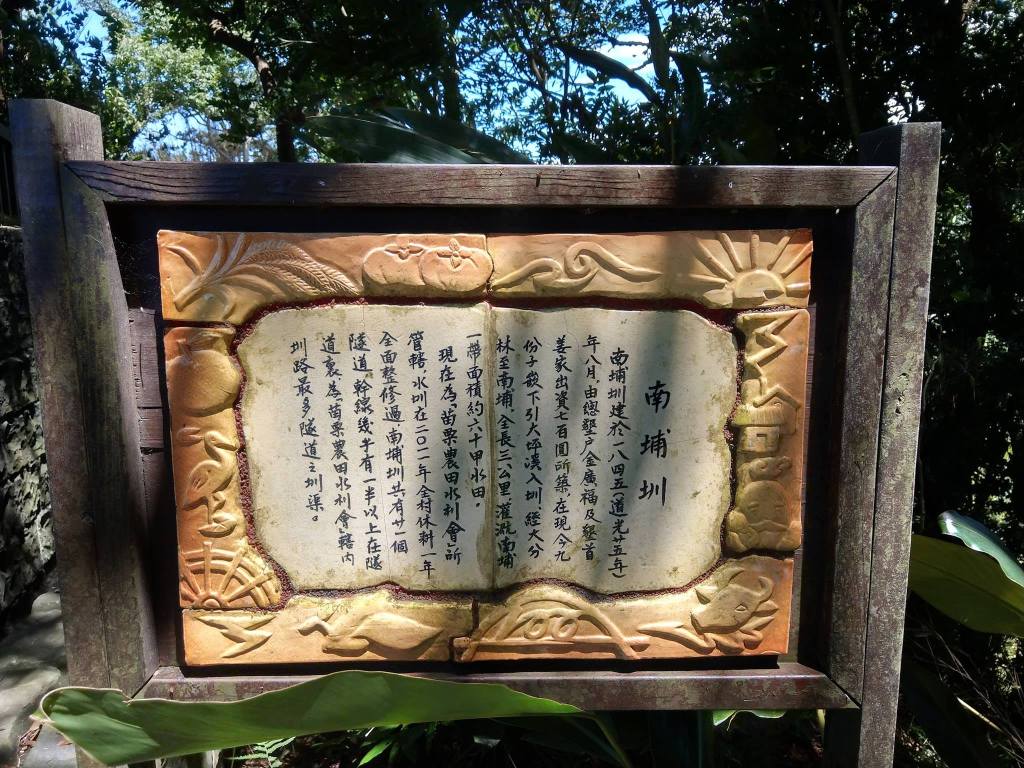 南埔圳
南埔圳建於一八四五(道光廿五年)
年八月,由總墾戶金廣福及墾首
姜家出資七百圓所築,在現今九
份子崁下引大坪溪入圳,經大分
林至南埔,全長三.六公里,灌溉南埔
一帶面積約六十甲水田。
現在為「苗栗農田水利會」所
管轄,水圳在二0一一年全村休耕一年
全面整修過,南埔圳共有廿一個
隧道,幹線幾乎有一半以上在隧
道裏,為「苗栗農田水利會」轄內
圳路最多隧道之圳渠。
100